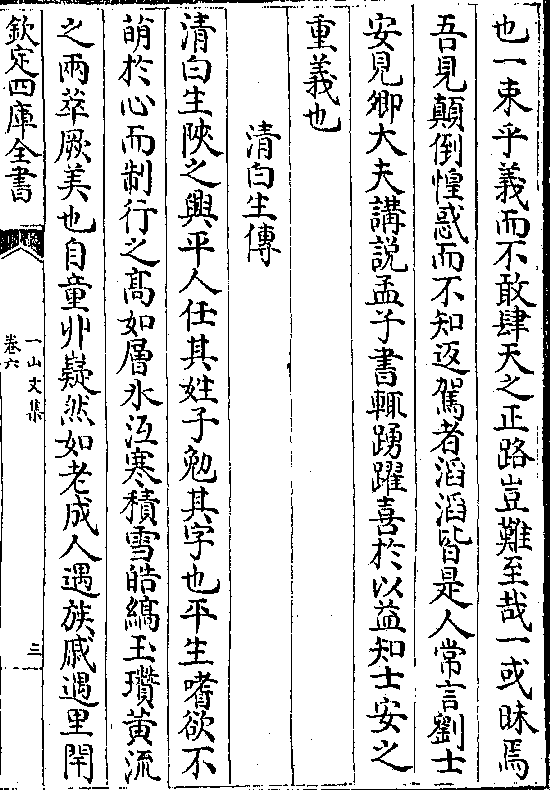 也一束乎義而不敢肆天之正路豈難至哉一或昧焉
吾見顛倒惶惑而不知返駕者滔滔皆是人常言劉士
安見卿大夫講說孟子書輒踴躍喜於以益知士安之
重義也
清白生傳
清白生陜之興平人任其姓子勉其字也平生嗜欲不
萌於心而制行之高如層氷沍寒積雪皓縞玉瓚黃流
之兩萃厥美也自童丱嶷然如老成人遇族戚遇里閈
欽定四庫全書
一山文集
卷六
三